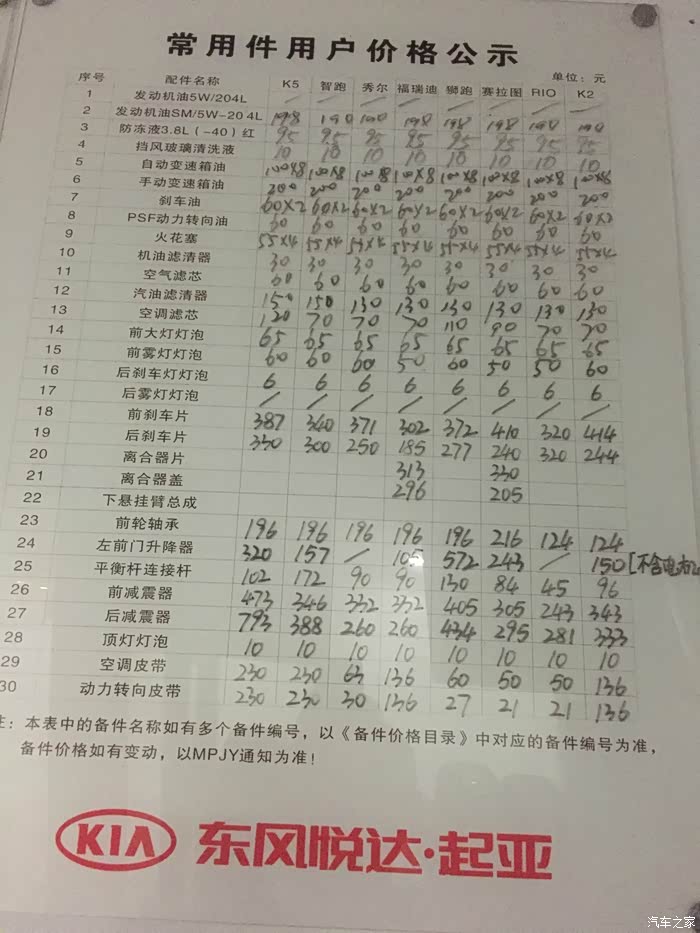 常用件用户价格公示
单位：元
序号 配件名称 K5 智跑 秀尔 福瑞迪 狮跑 赛拉图 RIO K2
1 发动机油5W/204L / / / / / / / /
2 发动机油SM/5W-20 4L 198 190 190 198 198 198 190 190
3 防冻液3.8L（-40）红 95 95 95 95 95 95 95 95
4 挡风玻璃清洗液 10 10 10 10 10 10 10 10
5 自动变速箱油 100×8 100×8 100×8 100×8 100×8 100×8 100×8 100×8
6 手动变速箱油 200 200 200 200 200 200 200 200
7 刹车油 60×2 60×2 60×2 60×2 60×2 60×2 60×2 60×2
8 PSF动力转向油 60 60 60 60 60 60 60 60
9 火花塞 55×4 55×4 55×4 55×4 55×4 55×4 55×4 55×4
10 机油滤清器 30 30 30 30 30 30 30 30
11 空气滤芯 60 60 60 60 60 60 60 60
12 汽油滤清器 150 150 130 130 130 130 130 130
13 空调滤芯 120 70 70 70 110 90 70 70
14 前大灯灯泡 65 65 65 65 65 65 65 65
15 前雾灯灯泡 60 60 60 50 60 50 50 60
16 后刹车灯灯泡 6 6 6 6 6 6 6 6
17 后雾灯灯泡 / / / / / / / /
18 前刹车片 387 340 371 302 372 410 320 414
19 后刹车片 330 300 250 185 277 240 320 244
20 离合器片 313 330
21 离合器盖 296 205
22 下悬挂臂总成
23 前轮轴承 196 196 196 196 196 216 124 124
24 左前门升降器 320 157 / 105 572 243 / 150 [不含电机
25 平衡杆连接杆 102 172 90 90 130 84 45 96
26 前减震器 473 346 332 332 405 305 243 343
27 后减震器 793 388 260 260 434 295 281 333
28 顶灯灯泡 10 10 10 10 10 10 10 10
29 空调皮带 230 230 63 136 60 50 50 136
30 动力转向皮带 230 230 30 136 27 21 21 136
注：本表中的备件名称如有多个备件编号，以《备件价格目录》中对应的备件编号为准，
备件价格如有变动，以MPJY通知为准！
KIA 东风悦达·起亚
汽车之家